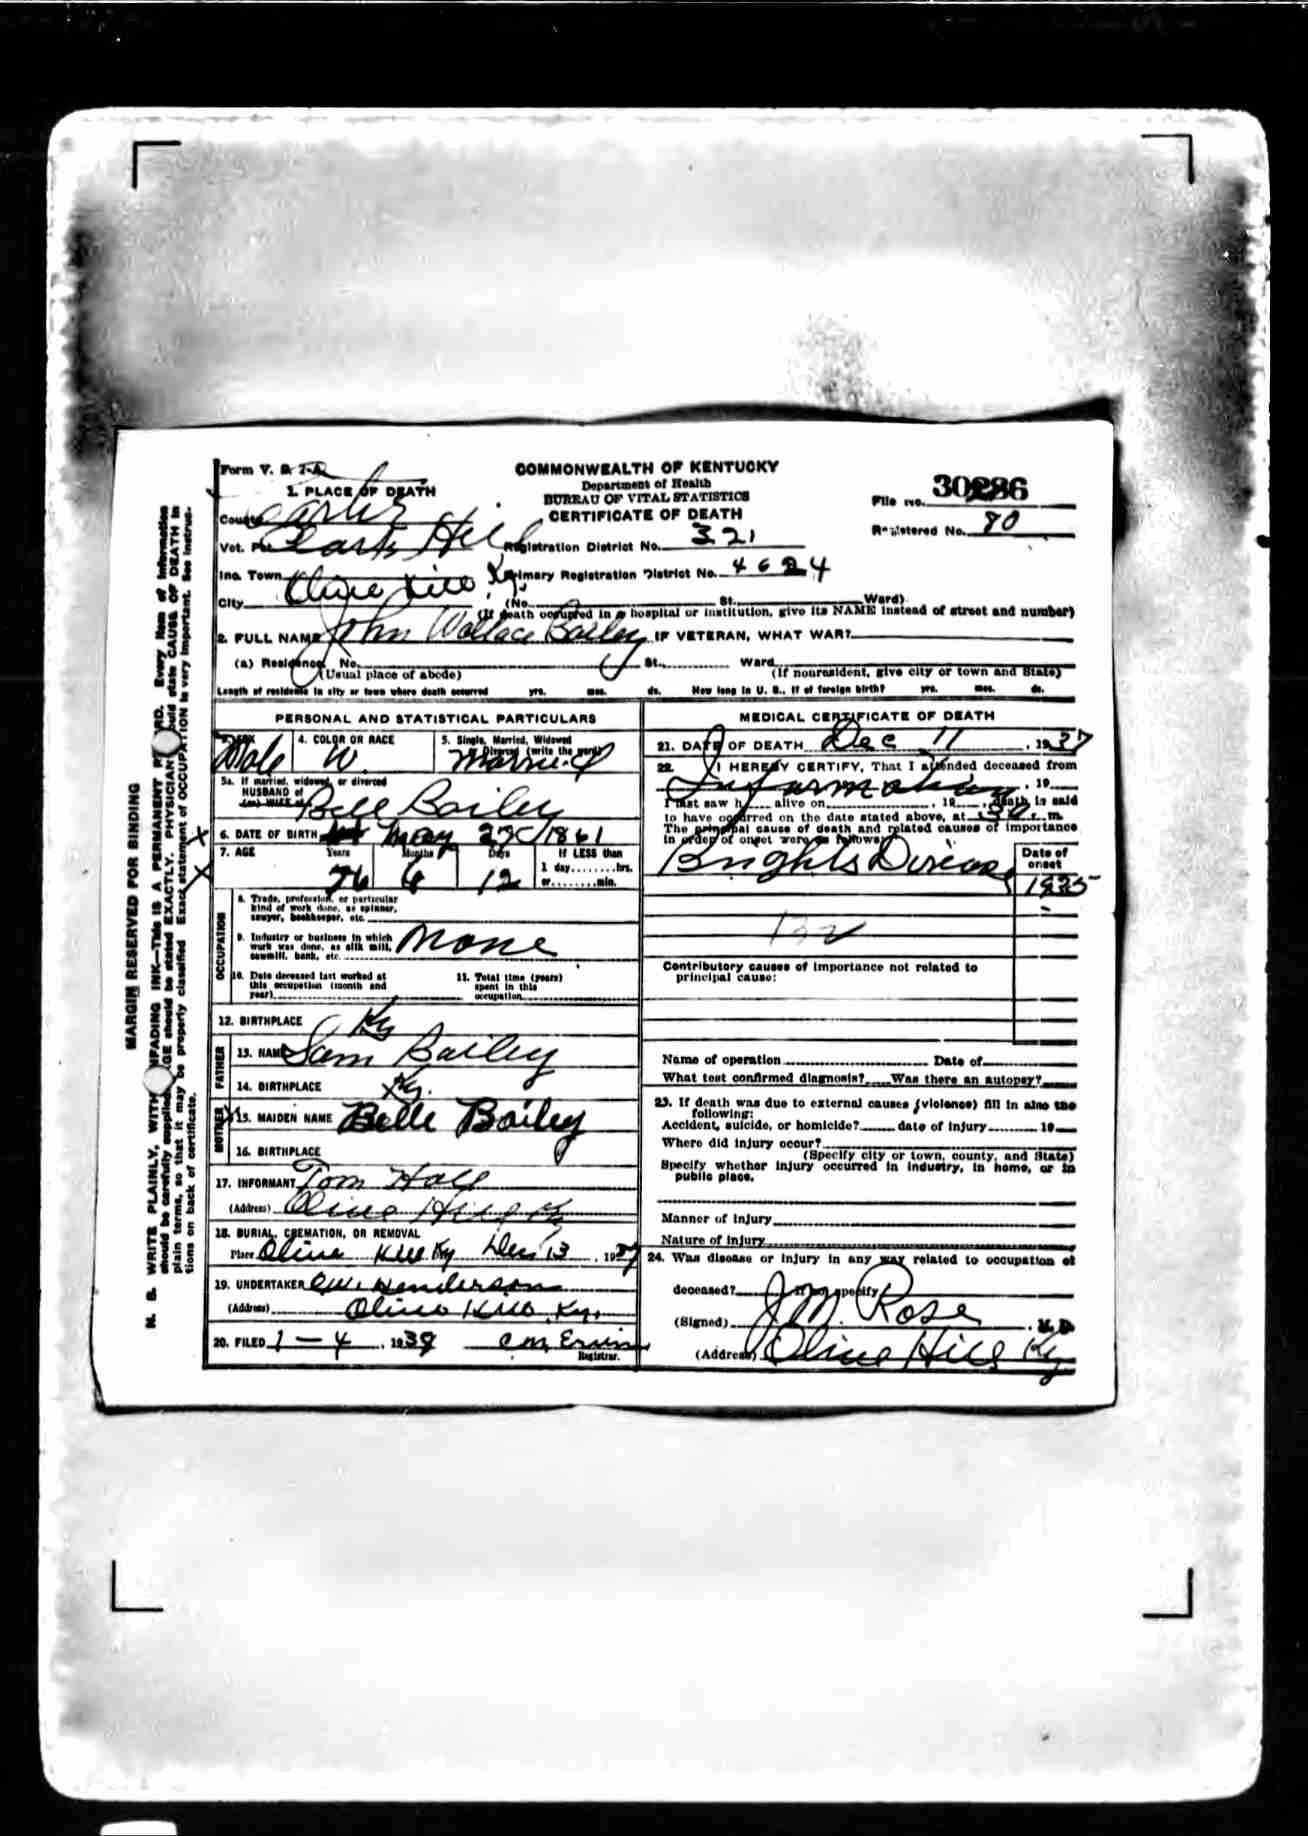 Form V. S. 1-A
COMMONWEALTH OF KENTUCKY
Department of Health
BUREAU OF VITAL STATISTICS
CERTIFICATE OF DEATH
File No. 30286
Registered No. 80
1. PLACE OF DEATH
County Carter
Vot. Pct. Clark Hill Registration District No. 321
Inc. Town Olive Hill Ky. Primary Registration District No. 4624
City (No. St. Ward)
(If death occurred in a hospital or institution, give its NAME instead of street and number)
2. FULL NAME John Wallace Bailey IF VETERAN, WHAT WAR?
(a) Residence. No. St. Ward
(Usual place of abode) (If nonresident, give city or town and State)
Length of residence in city or town where death occurred yrs. mos. ds. How long in U. S., if of foreign birth? yrs. mos. ds.
PERSONAL AND STATISTICAL PARTICULARS
3. SEX Male
4. COLOR OR RACE W
5. Single, Married, Widowed
Divorced (write the word) Married
5a. If married, widowed, or divorced
HUSBAND of
(or) WIFE of Bell Bailey
6. DATE OF BIRTH May 27 1861
7. AGE Years Months Days If LESS than
76 6 12 1 day hrs.
or min.
OCCUPATION
8. Trade, profession, or particular
kind of work done, as spinner,
sawyer, bookkeeper, etc.
9. Industry or business in which
work was done, as silk mill,
sawmill, bank, etc. None
10. Date deceased last worked at
this occupation (month and
year)
11. Total time (years)
spent in this
occupation
12. BIRTHPLACE Ky
FATHER
13. NAME Sam Bailey
14. BIRTHPLACE Ky.
MOTHER
15. MAIDEN NAME Belle Bailey
16. BIRTHPLACE
17. INFORMANT Tom Hall
(Address) Olive Hill Ky
18. BURIAL, CREMATION, OR REMOVAL
Place Olive Hill Ky Dec 13 1937
19. UNDERTAKER C.W. Henderson
(Address) Olive Hill Ky.
20. FILED 1 - 4, 1938 C M Erwin
Registrar.
MEDICAL CERTIFICATE OF DEATH
21. DATE OF DEATH Dec 11, 1937
22. I HEREBY CERTIFY, That I attended deceased from
Information, 19
I last saw h alive on, 19, death is said
to have occurred on the date stated above, at m.
The principal cause of death and related causes of importance
in order of onset were as follows:
Date of
onset
Brights Disease 1935
132
Contributory causes of importance not related to
principal cause:
Name of operation Date of
What test confirmed diagnosis? Was there an autopsy?
23. If death was due to external causes (violence) fill in also the
following:
Accident, suicide, or homicide? date of injury 19
Where did injury occur?
(Specify city or town, county, and State)
Specify whether injury occurred in industry, in home, or in
public place.
Manner of injury
Nature of injury
24. Was disease or injury in any way related to occupation of
deceased? If so, specify
(Signed) J M Rose, M. D.
(Address) Olive Hill Ky
MARGIN RESERVED FOR BINDING
N. B. WRITE PLAINLY, WITH UNFADING INK—THIS IS A PERMANENT RECORD. Every item of information
should be carefully supplied. AGE should be stated EXACTLY. PHYSICIANS should state CAUSE OF DEATH in
plain terms, so that it may be properly classified. Exact statement of OCCUPATION is very important. See instruc-
tions on back of certificate.